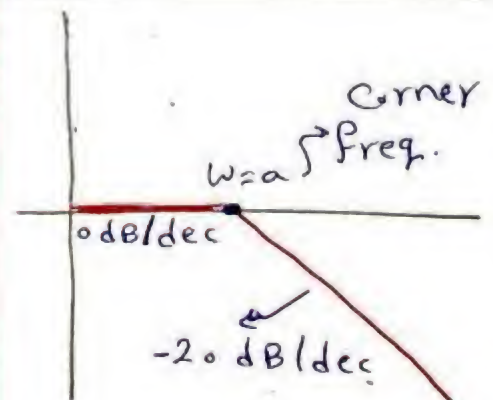 Corner
freq.
w=a
0 dB/dec
-20 dB/dec